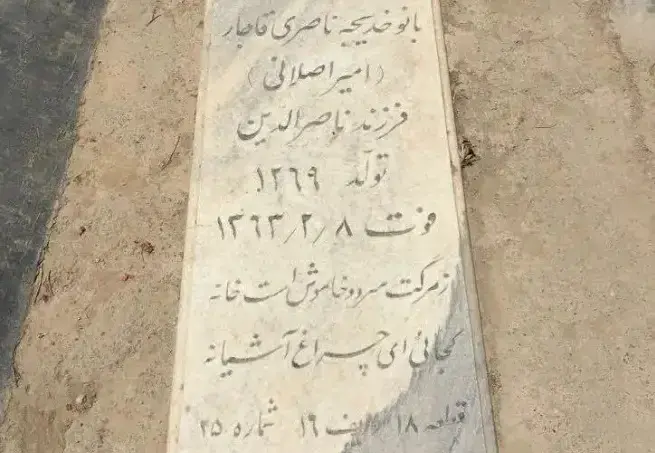 بانو خدیجه ناصری قاجار
(امیراصلانی)
فرزند ناصرالدین
تولّد ۱۲۶۹
فوت ۱۳۶۳/۲/۸
ز مرگت سرد و خاموش است خانه
کجائی ای چراغ آشیانه
قطعه ۱۸ ردیف ۱۶ شماره ۲۵